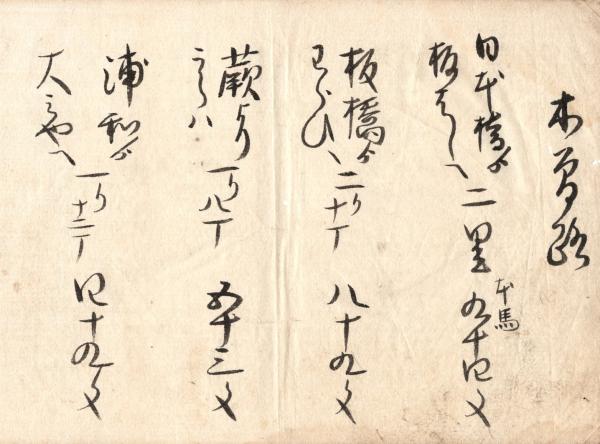 木曽路
日本橋ゟ
板はしへ 二里 本馬 九十四文
板橋ゟ
わらひへ 二り十丁 八十九文
蕨より
うらハ 一り八丁 五十三文
浦和ゟ
大ミやへ 一り十二丁 四十九文